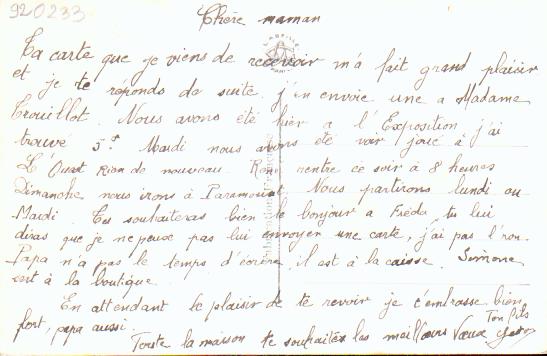 920233
Chère maman
Ta carte que je viens de recevoir m'a fait grand plaisir
et je te réponds de suite. j'en envoie une a Madame
Trouillot. Nous avons été hier a l'Exposition j'ai
trouvé 5d. Mardi nous avons été voir joué à
L'Ouest Rien de nouveau. René rentre ce soir à 8 heures
Dimanche nous irons à Paramount. Nous partirons lundi ou
Mardi. Tu souhaiteras bien le bonjour a Fréda, tu lui
diras que je ne peux pas lui envoyer une carte, j'ai pas l'rou.
Papa n'a pas le temps d'écrire, il est à la caisse. Simone
est à la boutique.
En attendant le plaisir de te revoir je t'embrasse bien
fort, papa aussi. Ton fils
Toute la maison te souhaites les meilleurs Vœux